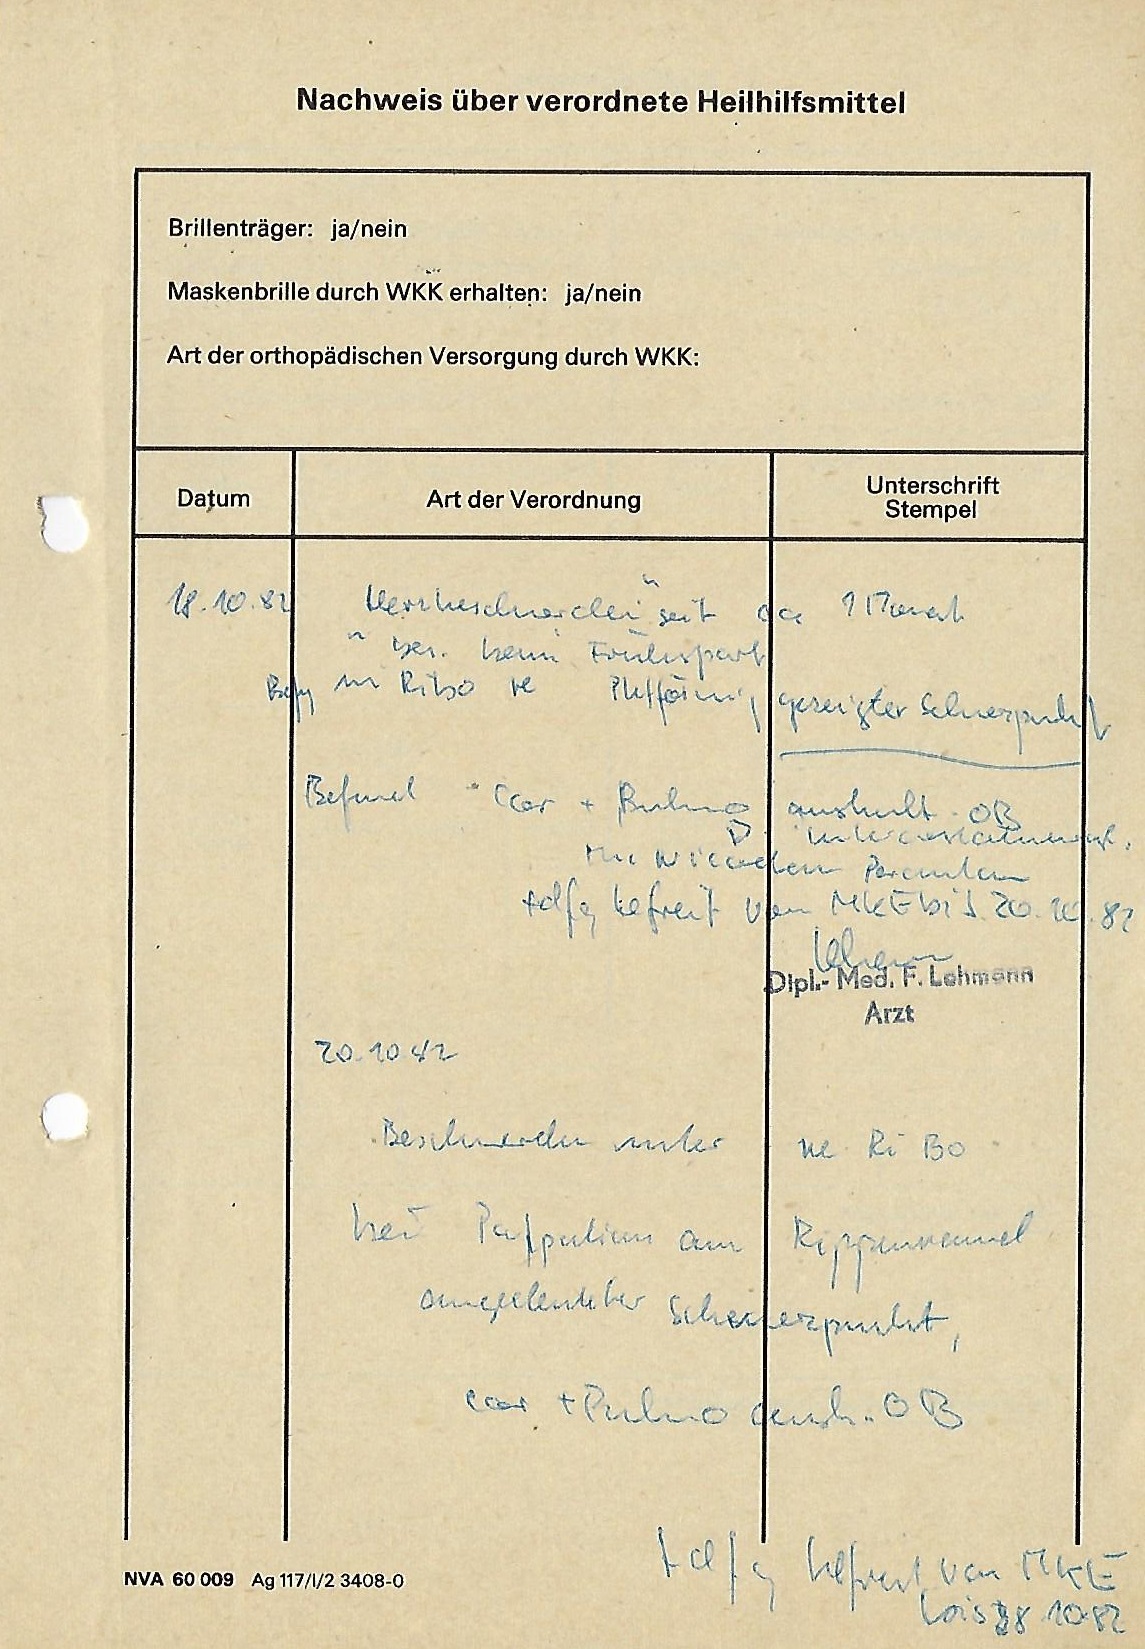 Nachweis über verordnete Heilhilfsmittel
Brillenträger: ja/nein
Maskenbrille durch WKK erhalten: ja/nein
Art der orthopädischen Versorgung durch WKK:
Datum
Art der Verordnung
Unterschrift
Stempel
18.10.82 Herzbeschwerden" seit ca 1 Monat
" bes. beim Frühsport
im RiBo re gezeigter Schmerzpunkt
Befund Cor + Pulmo auskult. OB
D
Paramben
tdfg befreit von MKE bis 20.10.82
Dipl.-Med. F. Lehmann
Arzt
20.10.82
Beschwerden unter re RiBo
bei Palpation am Rippenrand
angedeuteter Schmerzpunkt,
cor + Pulmo ausk. OB
tdfg befreit von MKE
bis 28.10.82
NVA 60 009 Ag 117/I/2 3408-0